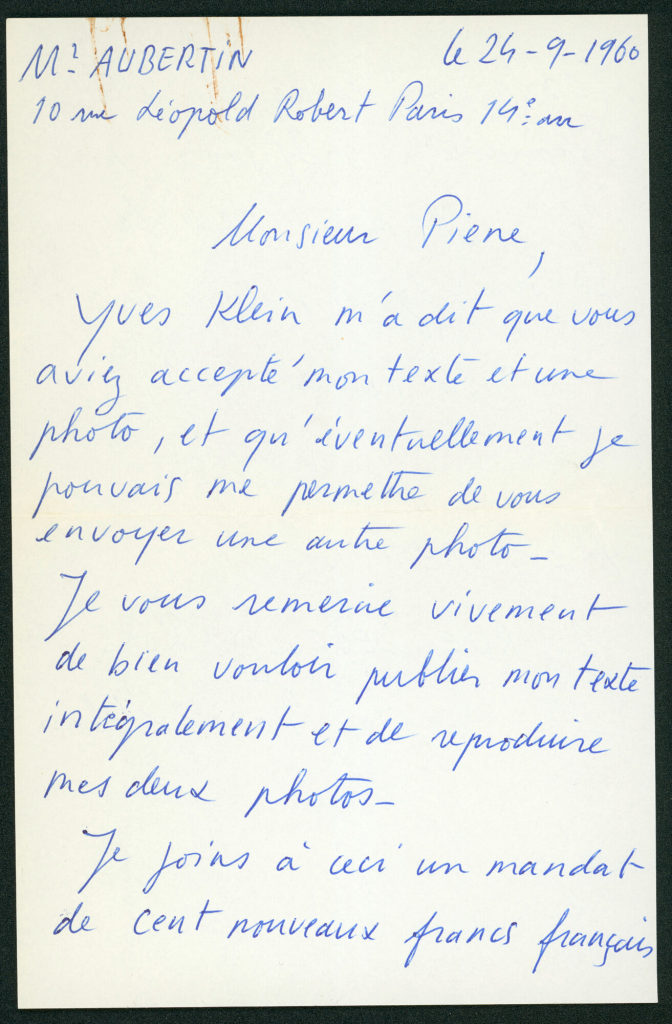 Mr AUBERTIN le 24-9-1960
10 rue Léopold Robert Paris 14e: arr
Monsieur Piene,
Yves Klein m'a dit que vous
aviez accepté mon texte et une
photo, et qu'éventuellement je
pouvais me permettre de vous
envoyer une autre photo_
Je vous remercie vivement
de bien vouloir publier mon texte
intégralement et de reproduire
mes deux photos_
Je joins à ceci un mandat
de cent nouveaux francs français